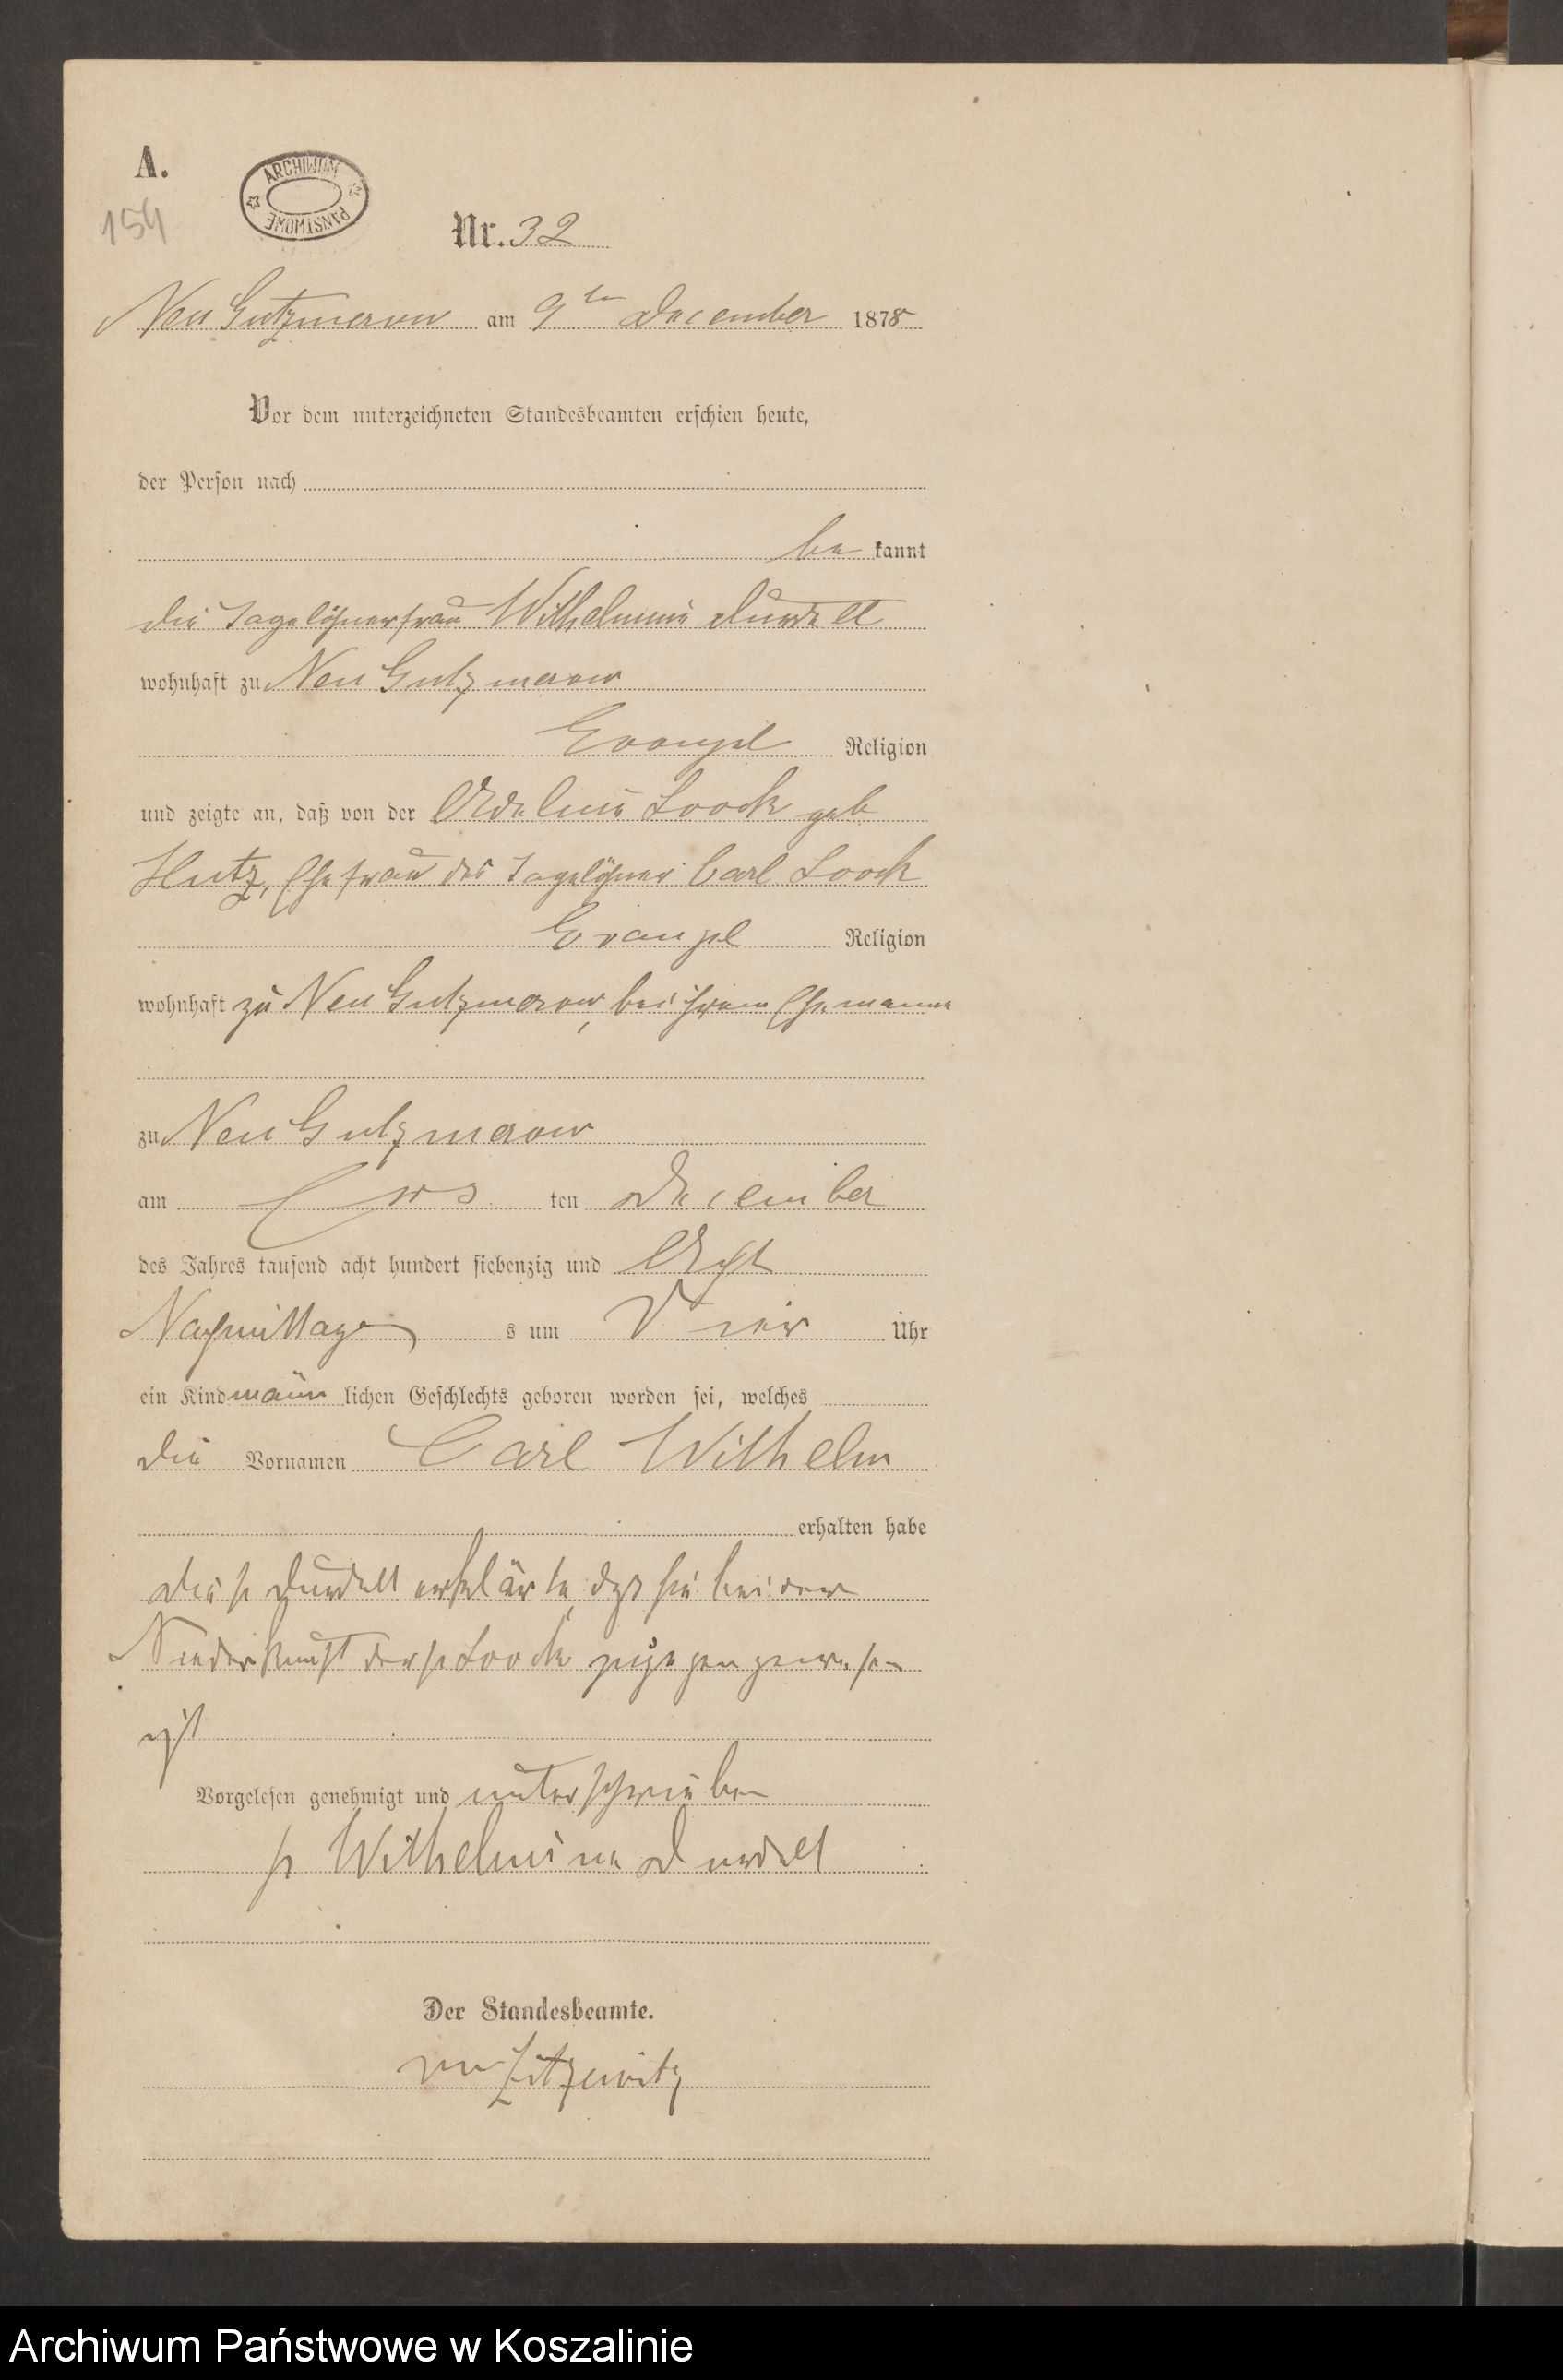 A.
ARCHIWUM PAŃSTWOWE
154
Nr. 32
Neu Gutzmerow am 9ten December 1878
Vor dem unterzeichneten Standesbeamten erschien heute,
der Person nach
be kannt
die Tagelöhnerfrau Wilhelmine
wohnhaft zu Neu Gutzmerow
Evangel Religion
und zeigte an, daß von der Loock geb
Hutz, Ehefrau des Tagelöhner Carl Loock
Evangel Religion
wohnhaft zu Neu Gutzmerow, bei ihrem Ehemanne
zu Neu Gutzmerow
am ten December
des Jahres tausend acht hundert siebenzig und Acht
Nachmittags um Vier Uhr
ein Kind männ lichen Geschlechts geboren worden sei, welches
die Vornamen Carl Wilhelm
erhalten habe
Die erklärte, daß sie bei der
Niederkunft der Loock zugegen gewesen
ist
Vorgelesen genehmigt und unterschrieben
Wilhelmine
Der Standesbeamte.
von Zitzewitz
Archiwum Państwowe w Koszalinie